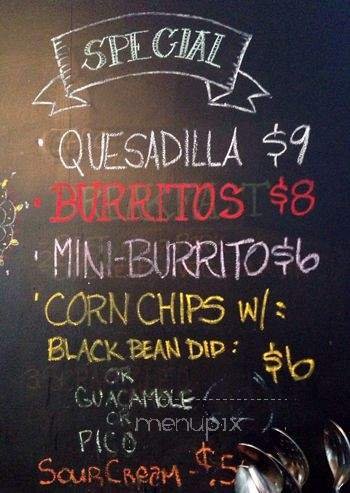 SPECIAL
• QUESADILLA $9
• BURRITOS $8
• MINI-BURRITO $6
• CORN CHIPS W/:
BLACK BEAN DIP: $6
OR
GUACAMOLE
OR
menupix
PICO
SOUR CREAM - $.5